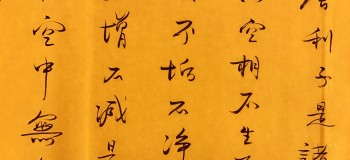 利子是諸
空相不生
不垢不净
增不減是
空中無